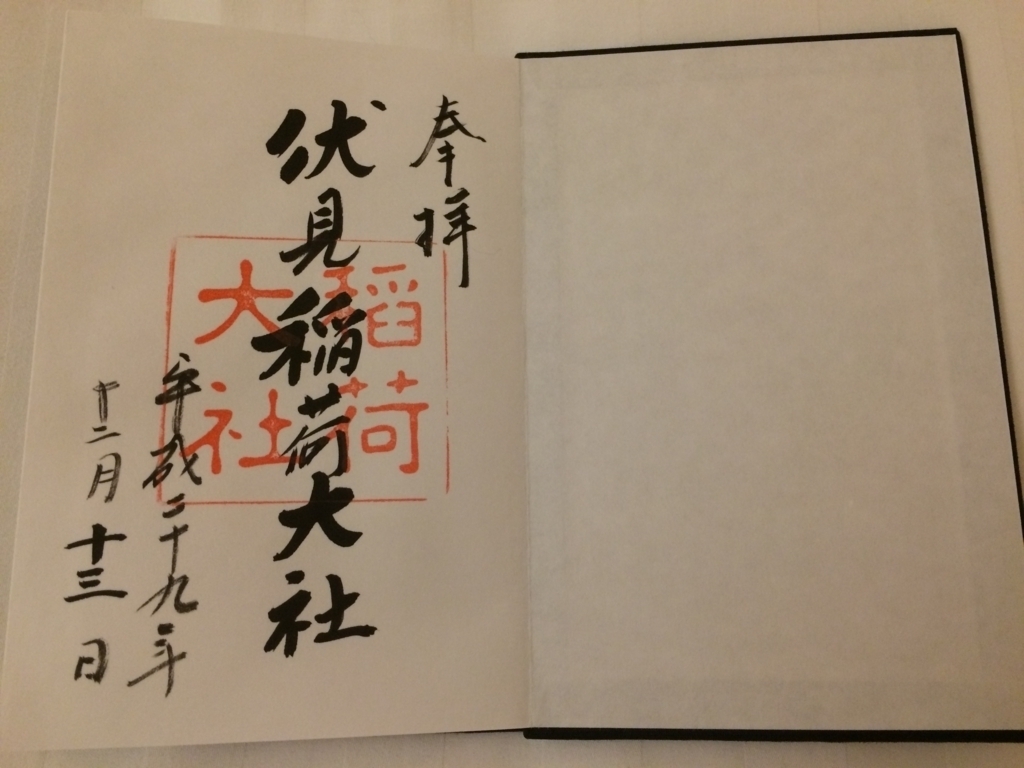 奉拝
伏見稲荷大社
稲荷
大社
平成二十九年
十二月十三日